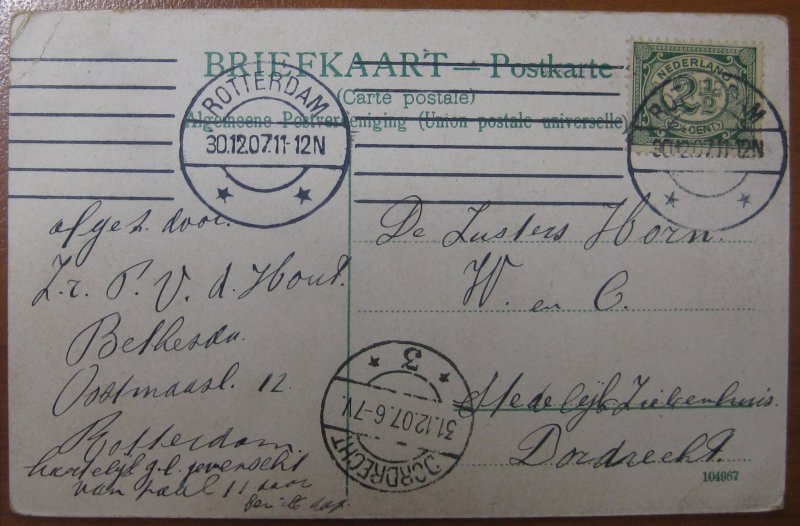 BRIEFKAART — Postkarte
(Carte postale)
Algemeene Postvereeniging (Union postale universelle)
NEDERLAND
2½
2½ CENT
ROTTERDAM
30.12.07.11-12N
ROTTERDAM
30.12.07.11-12N
afgez. door.
Zr. P. V. d. Hout.
Bethesda
Oostmaasl. 12
Rotterdam
hartelijk
van
11
De Zusters Horn.
W. en C.
Stedelijk Ziekenhuis.
Dordrecht.
3
31.12.07.6-7V
DORDRECHT
104967